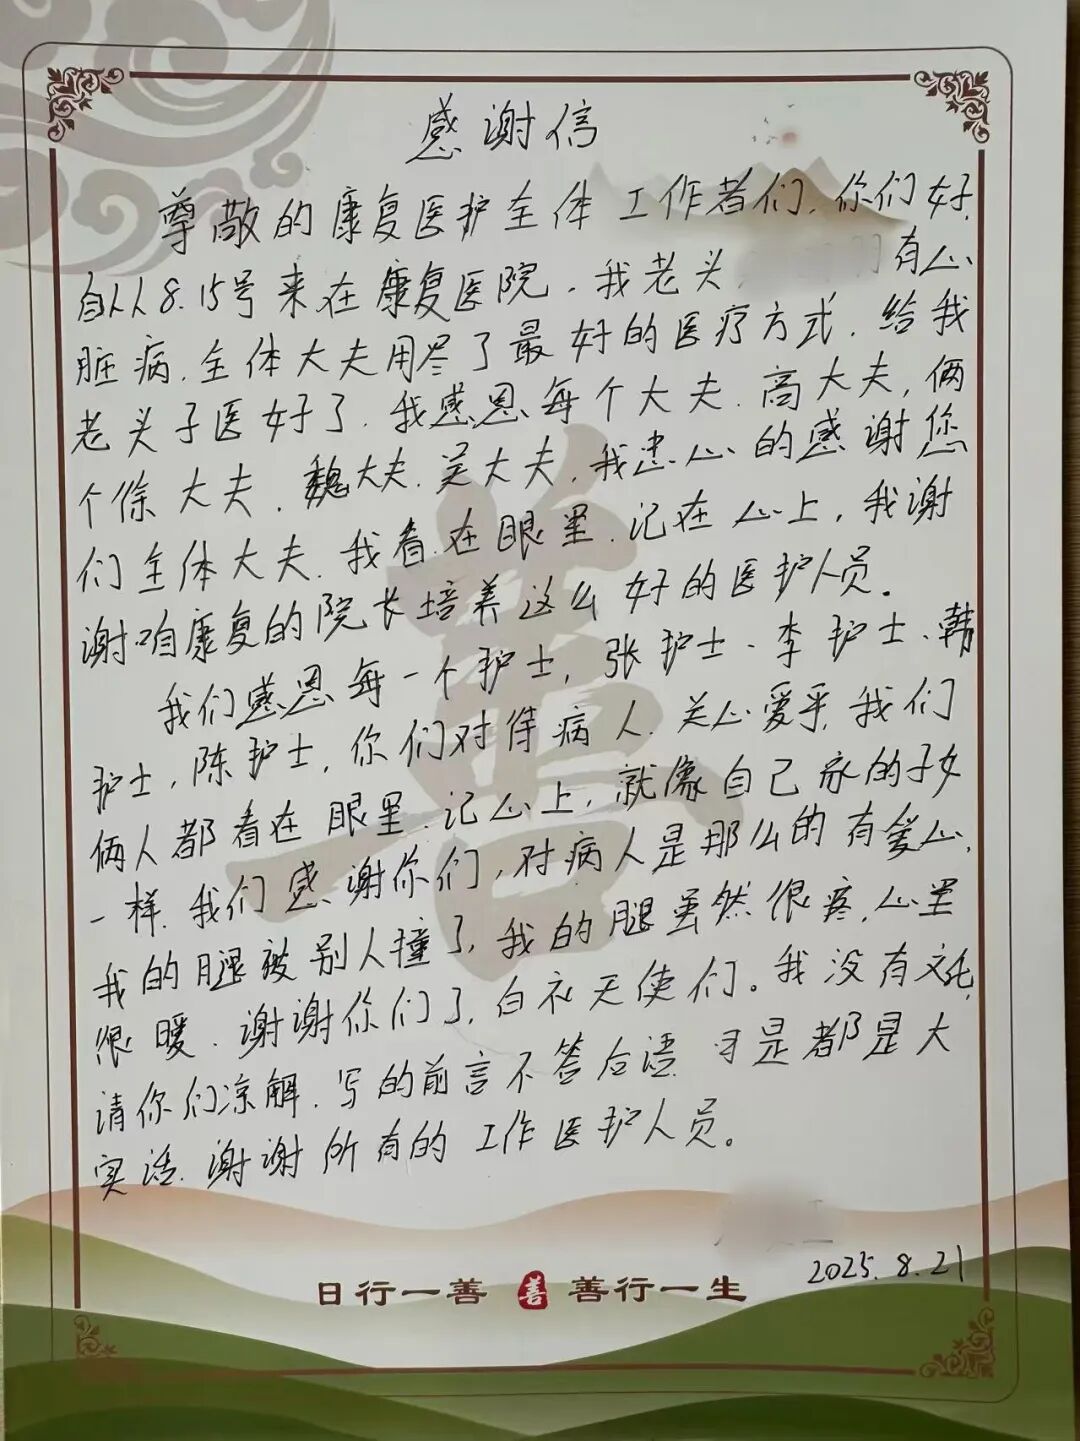 感谢信
尊敬的康复医护全体工作者们.你们好,
自从8.15号来在康复医院.我老头 有心
脏病.全体大夫用尽了最好的医疗方式.给我
老头子医好了.我感恩每个大夫.高大夫,俩
个徐大夫.魏大夫.吴大夫,我忠心的感谢您
们全体大夫.我看在眼里.记在心上,我谢
谢咱康复的院长培养这么好的医护人员。
我们感恩每一个护士,张护士、李护士、韩
护士,陈护士,你们对待病人.关心爱乎,我们
俩人都看在眼里.记心上,就像自己家的子女
一样.我们感谢你们,对病人是那么的有爱心.
我的腿被别人撞了,我的腿虽然很疼,心里
很暖.谢谢你们了,白衣天使们。我没有文化,
请你们凉解.写的前言不答后语.可是都是大
实话.谢谢所有的工作医护人员。
2025.8.21
日行一善 善 善行一生
善